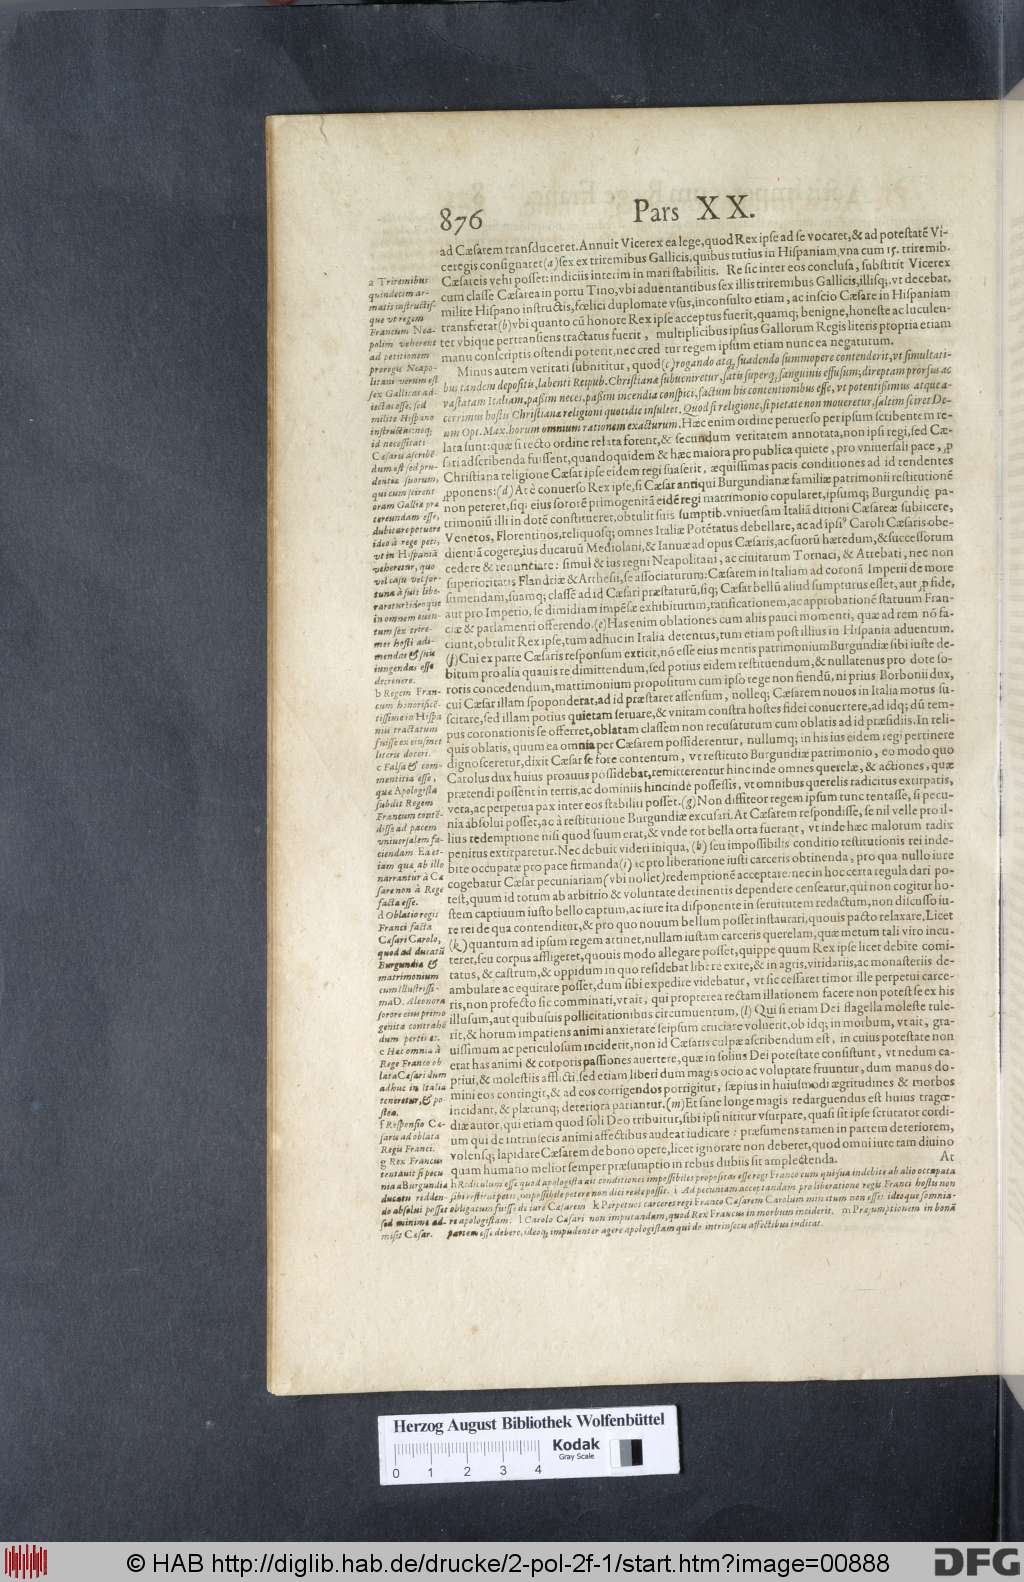 876
Pars XX.
ad Cæsarem transduceret. Annuit Vicerex ea lege, quod Rex ipse ad se vocaret, & ad potestatẽ Vi-
ceregis consignaret (a) sex ex triremibus Gallicis, quibus tutius in Hispaniam vna cum 15. triremib.
Cæsareis vehi posset: indiciis interim in mari stabilitis. Re sic inter eos conclusa, substitit Vicerex
cum classe Cæsarea in portu Tino, vbi aduentantibus sex illis triremibus Gallicis, illisq;, vt decebat,
milite Hispano instructis, fœlici duplomate vsus, inconsulto etiam, ac inscio Cæsare in Hispaniam
transfretat (b) vbi quanto cũ honore Rex ipse acceptus fuerit, quamq; benigne, honeste ac luculen-
ter vbique pertransiens tractatus fuerit, multiplicibus ipsius Gallorum Regis literis propria etiam
manu conscriptis ostendi poterit, nec cred tur regem ipsum etiam nunc ea negaturum.
Minus autem veritati subnititur, quod (c) rogando atq; suadendo summopere contenderit, vt simultati-
bus tandem depositis, labenti Reipub. Christianæ subueniretur, satis superq; sanguinis effusum; direptam prorsus ac
vastatam Italiam, passim neces, passim incendia conspici, factum his contentionibus esse, vt potentissimus atque a-
cerrimus hostis Christianæ religioni quotidie insultet. Quod si religione, si pietate non moueretur, saltem sciret De-
um Opt. Max. horum omnium rationem exacturum. Hæc enim ordine peruerso per ipsum scribentem re-
lata sunt: quæ si recto ordine relata forent, & secundum veritatem annotata, non ipsi regi, sed Cæ-
sari adscribenda fuissent, quandoquidem & hæc maiora pro publica quiete, pro vniuersali pace, ꝓ
Christiana religione Cæsar ipse eidem regi suaserit, æquissimas pacis conditiones ad id tendentes
ꝓponens: (d) At è conuerso Rex ipse, si Cæsar antiqui Burgundianæ familiæ patrimonii restitutionẽ
non peteret, siq; eius sororẽ primogenitã eidẽ regi matrimonio copularet, ipsumq; Burgundię pa-
trimoniũ illi in dotẽ constitueret, obtulit suis sumptib. vniuersam Italiã ditioni Cæsareæ subiicere,
Venetos, Florentinos, reliquosq; omnes Italiæ Potẽtatus debellare, ac ad ipsi⁹ Caroli Cæsaris obe-
dientiã cogere, ius ducatuũ Mediolani, & Ianuæ ad opus Cæsaris, ac suorũ hæredum, & successorum
cedere & renuntiare: simul & ius regni Neapolitani, ac ciuitatum Tornaci, & Atrebati, nec non
superioritatis Flandriæ & Arthesii, se associaturum: Cæsarem in Italiam ad coronã Imperii de more
sumendam, suamq; classẽ ad id Cæsari præstaturũ, siq; Cæsar bellũ aliud sumpturus esset, aut ꝓ fide,
aut pro Imperio, se dimidiam impẽsæ exhibiturum, ratificationem, ac approbationẽ statuum Fran-
ciæ & parlamenti offerendo. (e) Has enim oblationes cum aliis pauci momenti, quæ ad rem nõ fa-
ciunt, obtulit Rex ipse, tum adhuc in Italia detentus, tum etiam post illius in Hispania aduentum.
(f) Cui ex parte Cæsaris responsum extitit, nõ esse eius mentis patrimonium Burgundiæ sibi iuste de-
bitum pro alia quauis re dimittendum, sed potius eidem restituendum, & nullatenus pro dote so-
roris concedendum, matrimonium propositum cum ipso rege non fiendũ, ni prius Borbonii dux,
cui Cæsar illam spoponderat, ad id præstaret assensum, nolleq; Cæsarem nouos in Italia motus su-
scitare, sed illam potius quietam seruare, & vnitam constra hostes fidei conuertere, ad idq; dũ tem-
pus coronationis se offerret, oblatam classem non recusaturum cum oblatis ad id præsidiis. In reli-
quis oblatis, quum ea omnia per Cæsarem possiderentur, nullumq; in his ius eidem regi pertinere
dignosceretur, dixit Cæsar se fore contentum, vt restituto Burgundiæ patrimonio, eo modo quo
Carolus dux huius proauus possidebat, remitterentur hinc inde omnes querelæ, & actiones, quæ
prætendi possent in terris, ac dominiis hincinde possessis, vt omnibus querelis radicitus extirpatis,
vera, ac perpetua pax inter eos stabiliri posset. (g) Non diffiteor regem ipsum tunc tentasse, si pecu-
nia absolui posset, ac à restitutione Burgundiæ excusari. At Cæsarem respondisse, se nil velle pro il-
lius redemptione nisi quod suum erat, & vnde tot bella orta fuerant, vt inde hæc malorum radix
penitus extirparetur. Nec debuit videri iniqua, (h) seu impossibilis conditio restitutionis rei inde-
bite occupatæ pro pace firmanda (i) ac pro liberatione iusti carceris obtinenda, pro qua nullo iure
cogebatur Cæsar pecuniariam (vbi nollet) redemptionẽ acceptare: nec in hoc certa regula dari po-
test, quum id totum ab arbitrio & voluntate detinentis dependere censeatur, qui non cogitur ho-
stem captiuum iusto bello captum, ac iure ita disponente in seruitutem redactum, non discusso iu-
re rei de qua contenditur, & pro quo nouum bellum posset instaurari, quouis pacto relaxare, Licet
(k) quantum ad ipsum regem attinet, nullam iustam carceris querelam, quæ metum tali viro incu-
teret, seu corpus affligeret, quouis modo allegare posset, quippe quum Rex ipse licet debite comi-
tatus, & castrum, & oppidum in quo residebat libere exire, & in agris, viridariis, ac monasteriis de-
ambulare ac equitare posset, dum sibi expedire videbatur, vt sic cessaret timor ille perpetui carce-
ris, non profecto sic comminati, vt ait, qui propterea rectam illationem facere non potest se ex his
illusum, aut quibusuis pollicitationibus circumuentum, (l) Qui si etiam Dei flagella moleste tule-
rit, & horum impatiens animi anxietate seipsum cruciare voluerit, ob idq; in morbum, vt ait, gra-
uissimum ac periculosum inciderit, non id Cæsaris culpæ ascribendum est, in cuius potestate non
erat has animi & corporis passiones auertere, quæ in solius Dei potestate consistunt, vt nedum ca-
ptiui, & molestiis afflicti, sed etiam liberi dum magis ocio ac voluptate fruuntur, dum manus do-
mini eos contingit, & ad eos corrigendos porrigitur, sæpius in huiusmodi ægritudines & morbos
incidant, & plærunq; deteriora patiantur. (m) Et sane longe magis redarguendus est huius tragœ-
diæ autor, qui etiam quod soli Deo tribuitur, sibi ipsi nititur vsurpare, quasi sit ipse scrutator cordi-
um qui de intrinsecis animi affectibus audeat iudicare: præsumens tamen in partem deteriorem,
volensq; lapidare Cæsarem de bono opere, licet ignorare non deberet, quod omni iure tam diuino
quam humano melior semper præsumptio in rebus dubiis sit amplectenda. At
a Triremibus
quindecim ar-
matis instructis,
que vt regem
Francum Nea-
polim veherent
ad petitionem
proregis Neapo-
litani verum est
sex Gallicas ad-
iectas esse, sed
milite Hispano
instructas: neq;
id necessitati
Cæsaris ascribẽ
dum est sed pru-
dentiæ suorum,
qui cum scirent
oram Galliæ præ
tereundam esse,
dubitare potuere
ideo à rege peti,
vt in Hispaniã
veheretur, quo
vel casu vel for-
tuna à suis libe-
raretur: ideoque
in omnem euen-
tum sex trire-
mes hosti adi-
mendas & suis
iungendas esse
decreuere.
b Regem Fran-
cum honorificẽ-
tissime in Hispa
nia tractatum
fuisse ex eiusmet
literis doceri.
c Falsa & com-
mentitia esse,
quæ Apologista
subdit Regem
Francum contẽ-
disse ad pacem
vniuersalem fa-
ciendam Ea et-
iam quæ ab illo
narrantur à Cæ
sare non à Rege
facta esse.
d Oblatio regis
Franci facta
Cæsari Carolo,
quod ad ducatũ
Burgundiæ &
matrimonium
cum illustrissi-
ma D. Aleonora
sorore eius primo
genita contrahẽ
dum pertinet.
e Hæc omnia à
Rege Franco ob
lata Cæsari dum
adhuc in Italia
teneretur, & po-
stea.
f Responsio Cæ-
saris ad oblata
Regis Franci.
g Rex Francus
tentauit si pecu
nia a Burgundia
ducatu redden-
do absolui posset
sed minime ad-
misit Cæsar.
h Rediculum esse quod apologista ait conditiones impossibiles propositas esse regi Franco cum quis sua indebite ab alio occupata
sibi restitui petit, impossibile petere non dici recte possit. i Ad pecuniam acceptandam pro liberatione regis Franci hostis non
obligatum fuisse de iure Cæsarem k Perpetuos carceres regi Franco Cæsarem Carolum minitum non esse: ideoque somnia-
re apologistam. l Carolo Cæsari non imputandum, quod Rex Francus in morbum inciderit. m Præsumptionem in bonã
partem esse debere, ideoq; impudenter agere apologistam qui de intrinsecis affectibus iudicat.
Herzog August Bibliothek Wolfenbüttel
Kodak
Gray Scale
0 1 2 3 4
© HAB http://diglib.hab.de/drucke/2-pol-2f-1/start.htm?image=00888
DFG